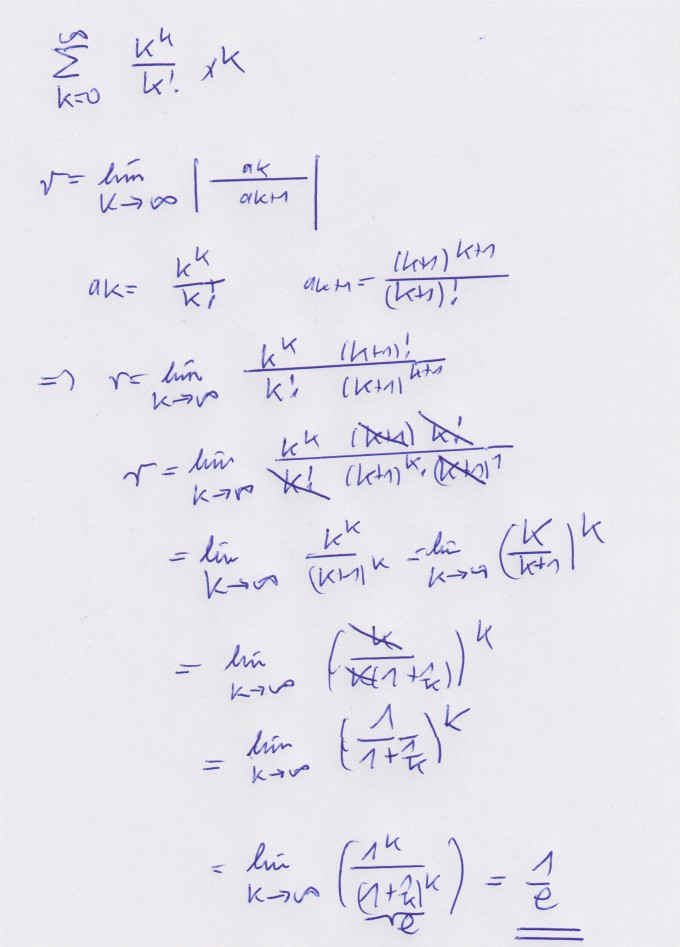 ∑_{k=0}^{∞} k^k / k! x^k
r = lim_{k→∞} | ak / ak+1 |
ak = k^k / k! ak+1 = (k+1)^{k+1} / (k+1)!
=> r = lim_{k→∞} k^k (k+1)! / k! (k+1)^{k+1}
r = lim_{k→∞} k^k (k+1) k! / k! (k+1)^k · (k+1)^1
= lim_{k→∞} k^k / (k+1)^k = lim_{k→∞} (k / k+1)^k
= lim_{k→∞} (k / k(1 + 1/k))^k
= lim_{k→∞} (1 / 1 + 1/k)^k
= lim_{k→∞} (1^k / (1 + 1/k)^k) = 1/e
e